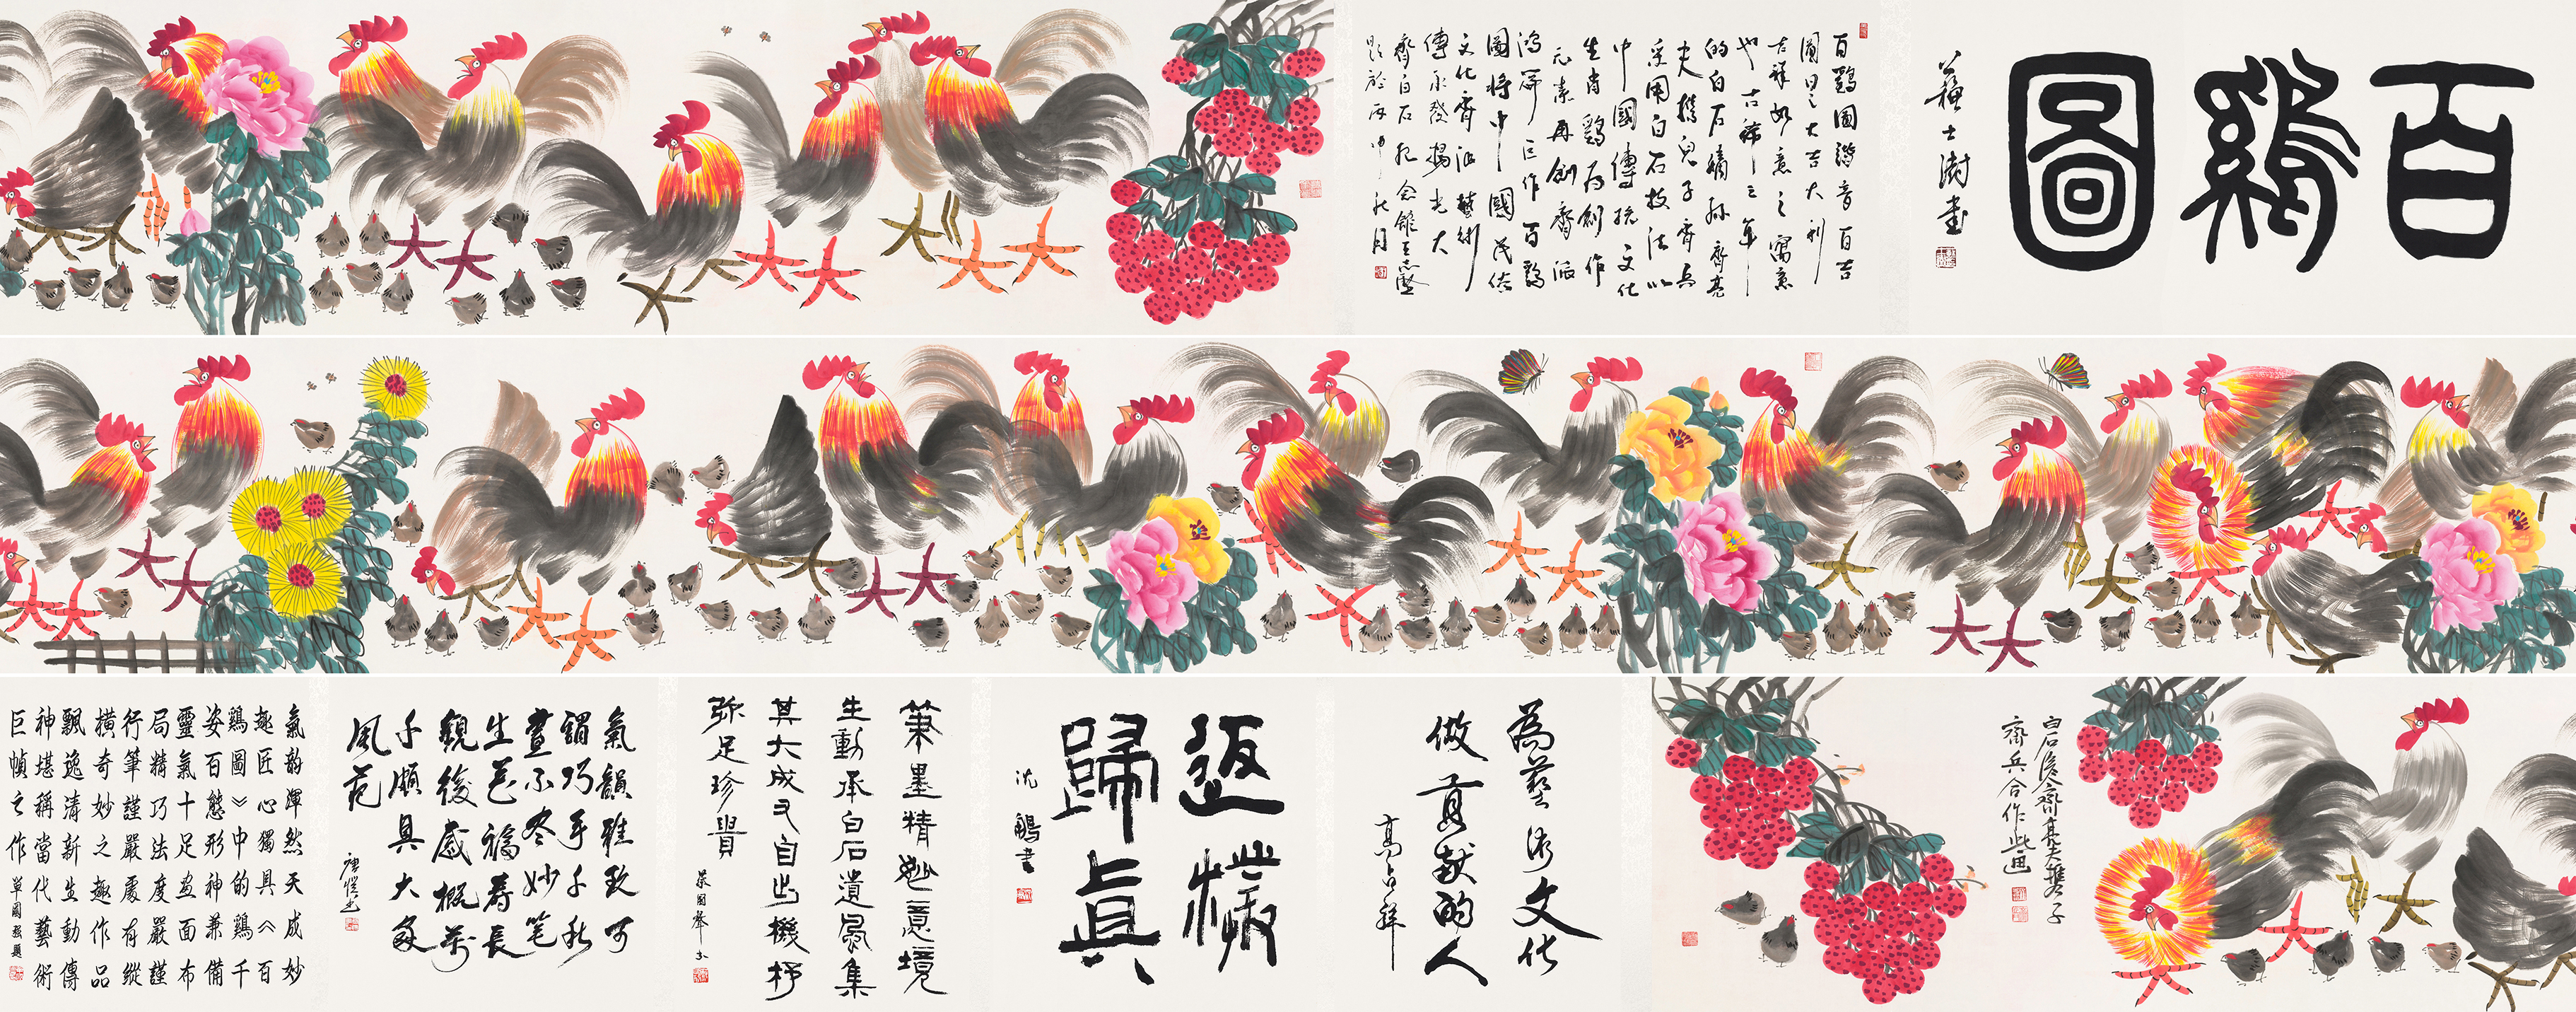 百鷄圖
蘇士澍書
百鷄圖諧音百吉
圖曰之大吉大利
吉祥如意之寓意
也古稀之年
的白石嫡孫齊亮
夫携兒子齊兵
采用白石技法以
中國傳統文化
生肖鷄为創作
元素再創齊派
鴻篇巨作百鷄
圖將中國民俗
文化齊派藝術
傳承發揚光大
齊白石紀念館王志堅
題於丙申秋月
白石後人齊亮夫携子
齊兵合作此画
為藝術文化
做貢献的人
高占祥
返樸
歸真
沈鵬書
筆墨精妙意境
生動承白石遺風集
其大成又自出機杼
弥足珍貴
氣韻雅致可
謂巧手千秋
畫不盡妙笔
生花福壽長
觀後感概萬
千頗具大家
風范
氣韵渾然天成妙
趣匠心獨具《百
鷄圖》中的鷄千
姿百態形神兼備
靈氣十足画面布
局精巧法度嚴謹
行筆謹嚴處有縱
横奇妙之趣作品
飄逸清新生動傳
神堪稱當代藝術
巨幀之作單國强題